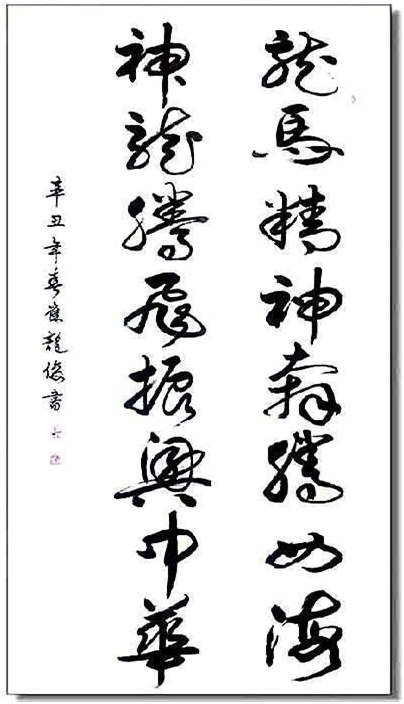 龍馬精神奔騰四海
神龍騰飛振興中華
辛丑年春龍書